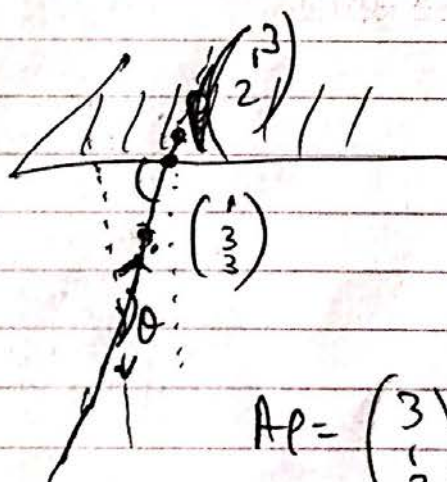 (3
1
2)
(1
3
3)
θ
AP = (3
1
2